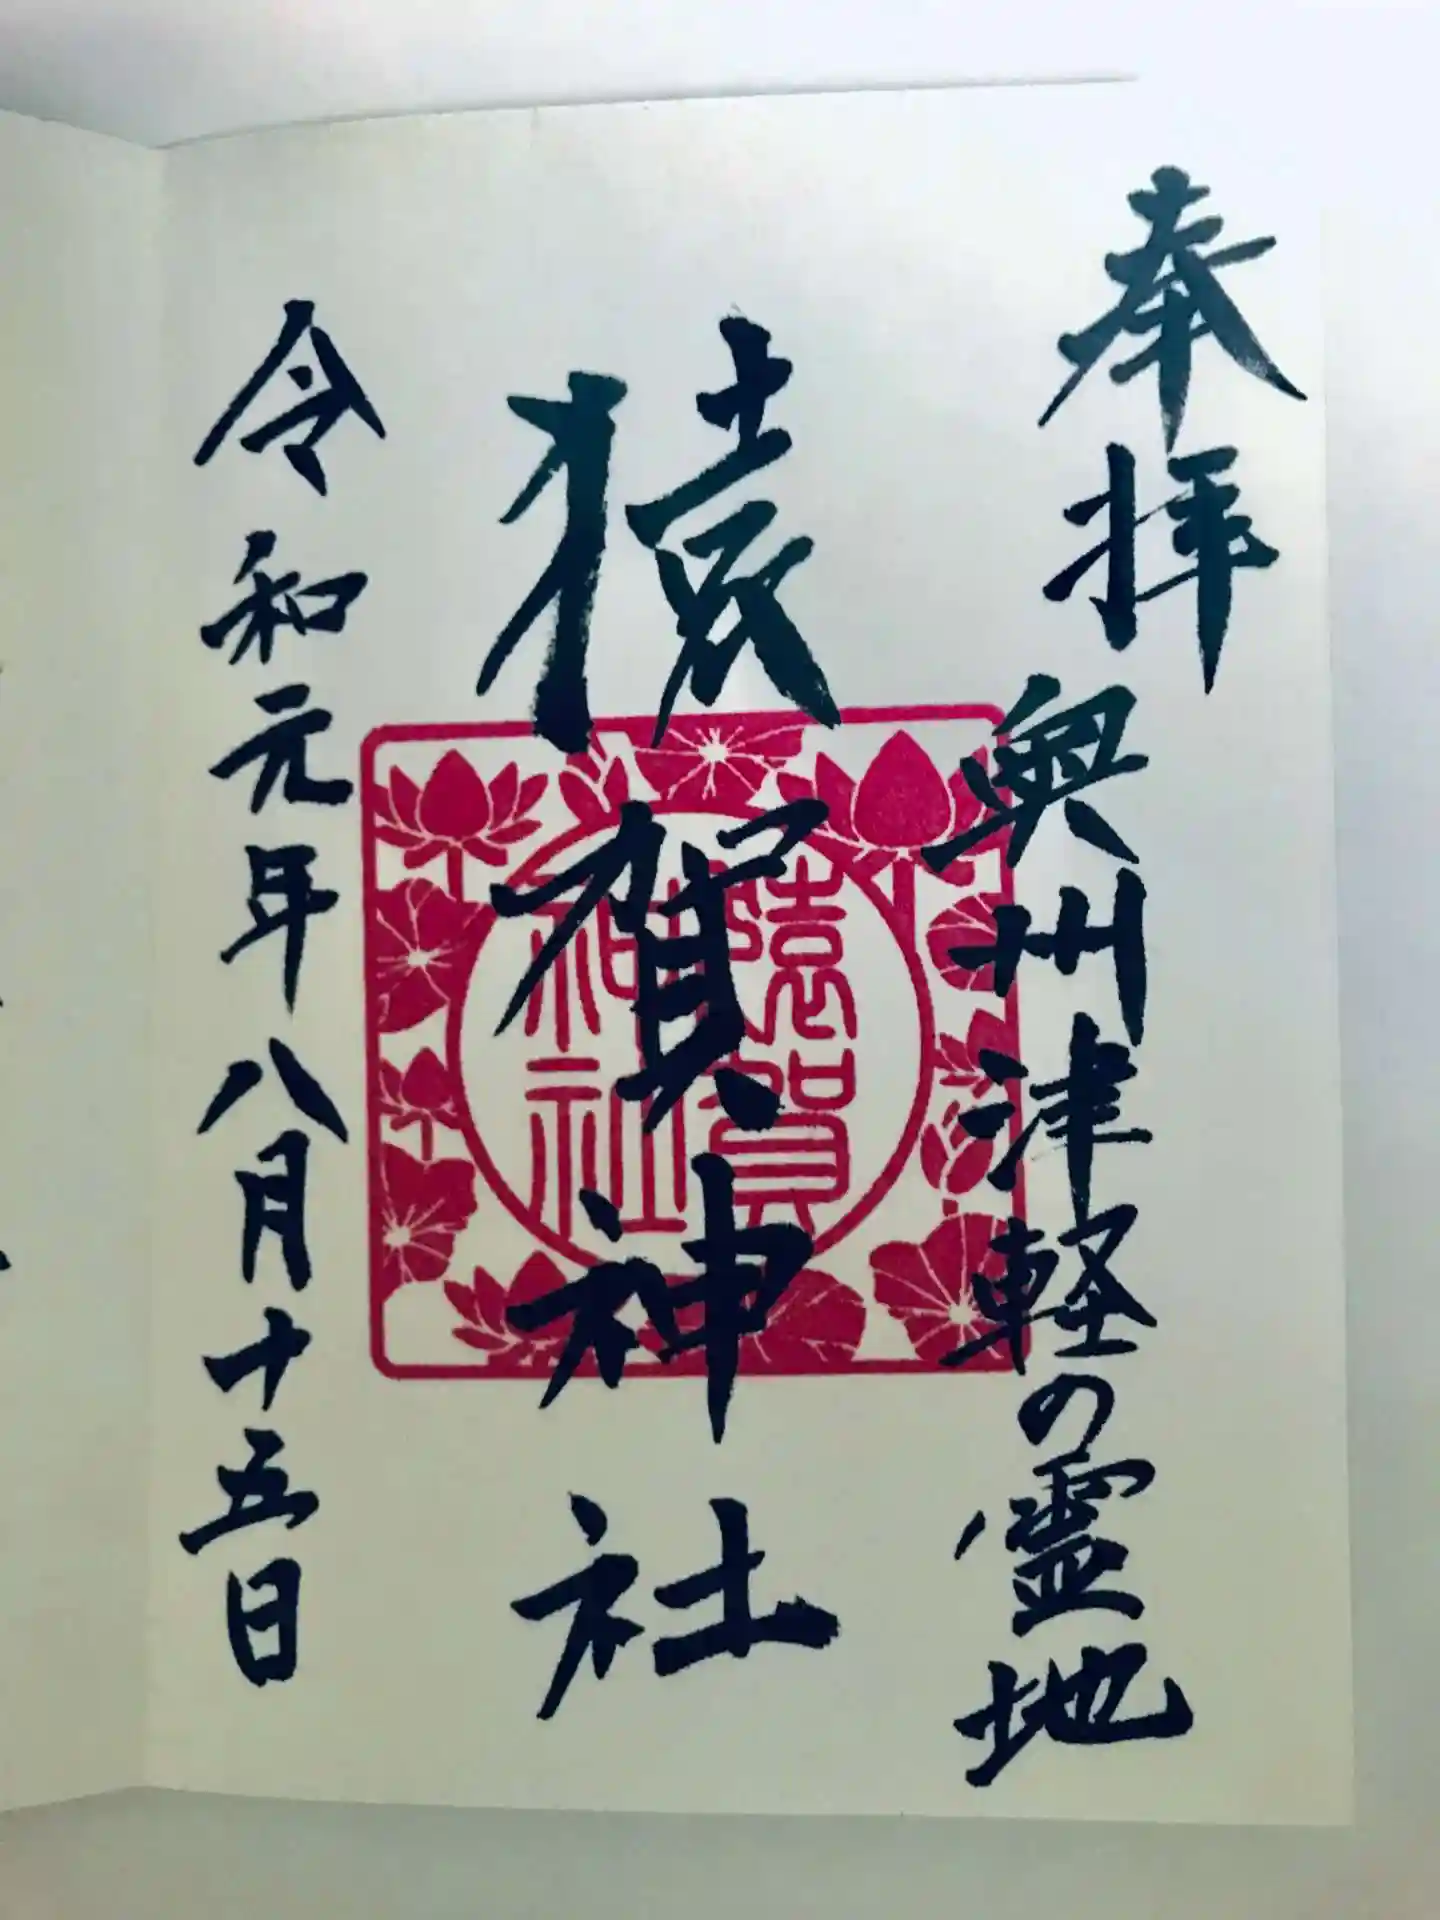 奉拝
奥州津軽の霊地
猿賀神社
猿賀神社
令和元年八月十五日